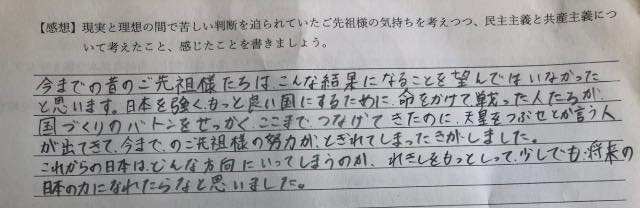 【感想】現実と理想の間で苦しい判断を迫られていたご先祖様の気持ちを考えつつ、民主主義と共産主義につ
いて考えたこと、感じたことを書きましょう。
今までの昔のご先祖様たちは、こんな結果になることを望んではいなかった
と思います。日本を強く、もっと良い国にするために、命をかけて戦った人たちが、
国づくりのバトンをせっかく、ここまで、つなげてきたのに、天皇をつぶせとか言う人
が出てきて、今までのご先祖様の努力が、とぎれてしまったきがしました。
これからの日本は、どんな方向にいってしまうのか、れきしをもっとしって、少しでも、将来の
日本の力になれたらなと思いました。